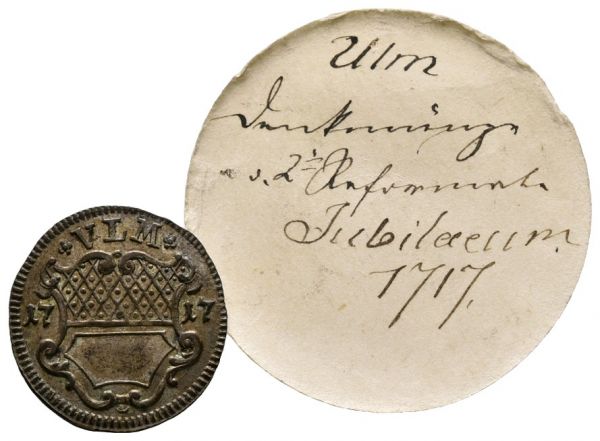 VLM
17 17
Ulm
Denkmünze
v. 2ᵗ Reformat.
Jubilaeum.
1717.